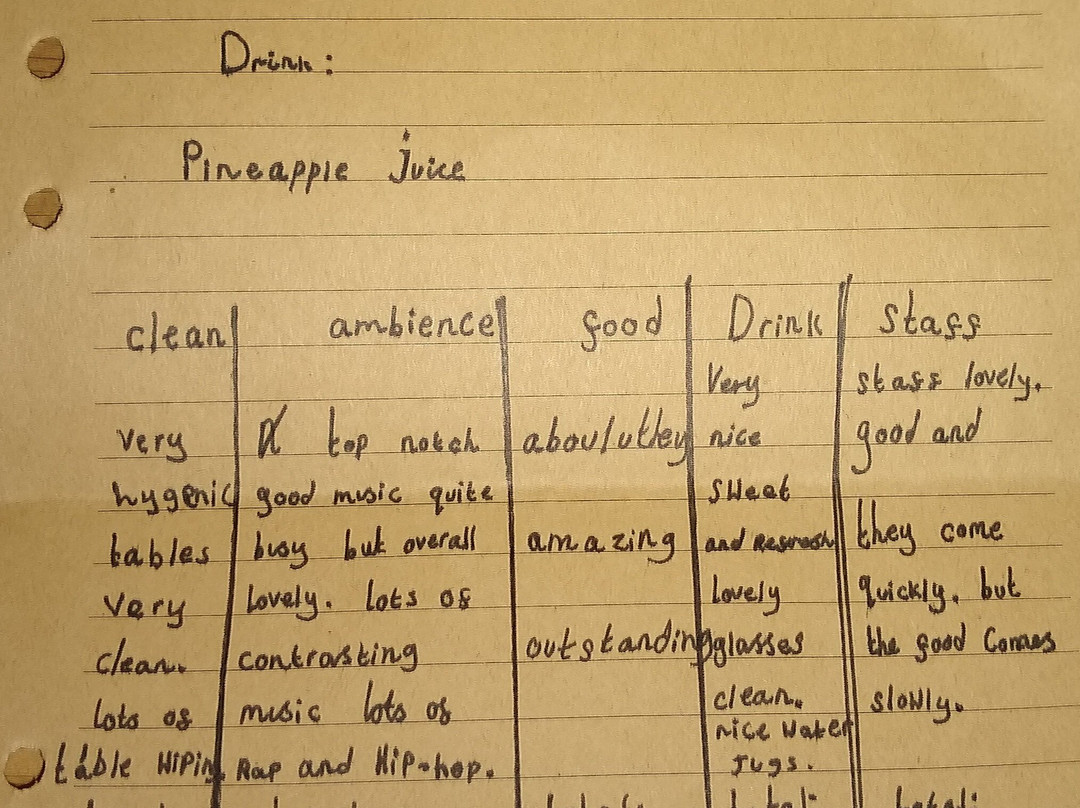 Drink:
Pineapple juice
clean
ambience
food
Drink
Staff
very
hygenic
tables
very
clean.
lots of
table wiping
top notch
good music quite
busy but overall
lovely. lots of
contrasting
music lots of
Rap and Hip-hop.
aboulutley
amazing
outstanding
Very
nice
sweet
and Refresh
lovely
glasses
clean.
nice water
Jugs.
staff lovely.
good and
they come
quickly. but
the food Comes
slowly.